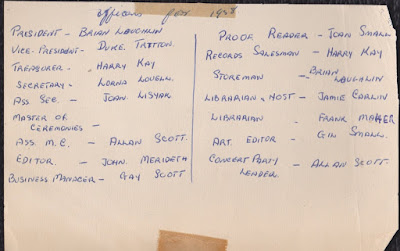 Officers for 1958
PRESIDENT - BRIAN LOUGHLIN
VICE-PRESIDENT - DUKE TRITTON.
TREASURER - HARRY KAY
SECRETARY - LORNA LOVELL.
ASS SEC. - JOAN LISYAK.
MASTER OF
CEREMONIES -
ASS. M.C. - ALLAN SCOTT.
EDITOR - JOHN MERIDETH
BUSINESS MANAGER - GAY SCOTT
PROOF READER - JOAN SMALL.
RECORDS SALESMAN - HARRY KAY
STOREMAN - BRIAN
LOUGHLIN
LIBRARIAN & HOST - JAMIE CARLIN
LIBRARIAN - FRANK MAHER
ART. EDITOR - GIL SMALL.
CONCERT PARTY - ALLAN SCOTT.
LEADER.